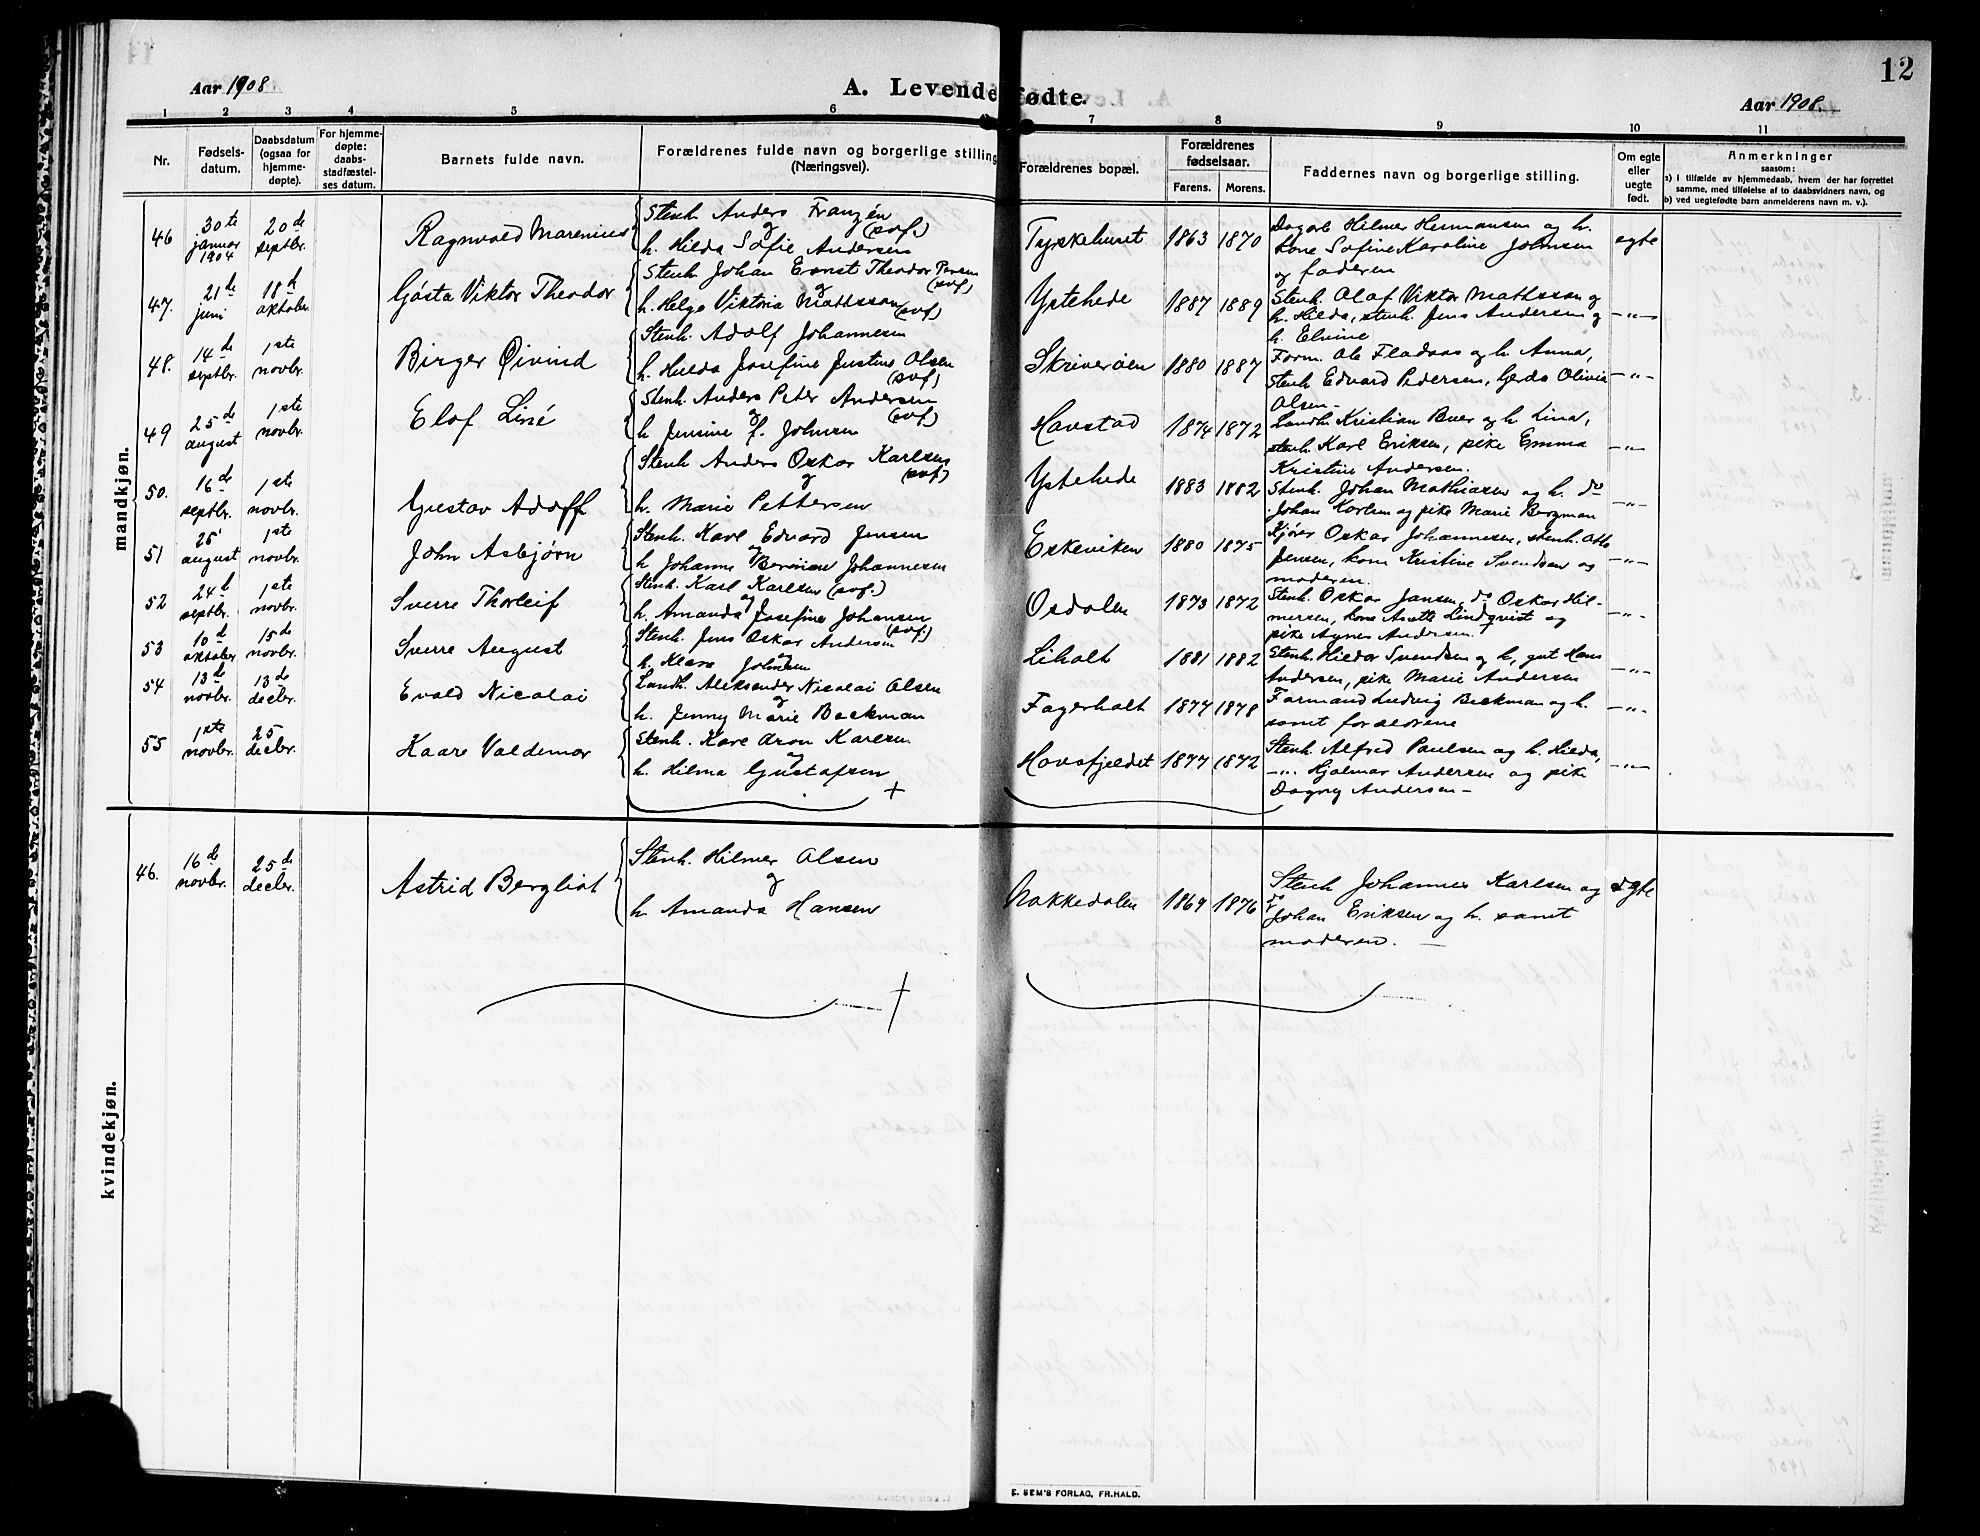 12
Aar 1908
A. Levendefødte.
Aar 1908.
1 2 3 4 5 6 7 8 9 10 11
Nr.
Fødsels-
datum.
Daabsdatum
(ogsaa for
hjemme-
døpte).
For hjemme-
døpte:
daabs-
stadfæstel-
ses datum.
Barnets fulde navn.
Forældrenes fulde navn og borgerlige stilling
(Næringsvei).
Forældrenes bopæl.
Forældrenes
fødselsaar.
Farens. Morens.
Faddernes navn og borgerlige stilling.
Om egte
eller
uegte
født.
Anmerkninger
saasom:
a) i tilfælde av hjemmedaab, hvem der har forrettet
samme, med tilføielse af to daabsvidners navn, og
b) ved uegtefødte barn anmelderens navn m. v.).
mandkjøn.
46
30te januar 1904
20de septbr.
Ragnvald Marenius
Stenh. Anders Franzén
og (svf.)
h. Hilda Sofie Andersen
Tyskehuset 1863 1870
Dagarb Hilmer Hermansen og h.
kone Sofine Karoline Johnsen
og faderen
egte
47.
21de juni
18de oktober
Gösta Viktor Theodor
Stenh Johan Ernst Theodor Persen
og (svf)
h. Helga Viktoria Mathsson (svf)
Ystehede 1887 1889
Stenh. Olaf Viktor Mathsson og
h. Hilda, stenh. Jens Andersen og
h. Elvine
-"-
48.
14de septbr.
1ste novbr.
Birger Øivind
Stenh. Adolf Johannesen
h. Hulda Josefine Justine Olsen
(svf)
Skriverøen 1880 1887
Form. Ole Fladaas og h. Anna,
stenh Edvard Pedersen, Gerda Olivia
Olsen-
-"-
49
25de august
1ste novbr.
Elof Liné
Stenh. Anders Peter Andersen
og (svf)
h Jensine f. Johnsen
Havstad 1874 1872
Landh Kristian Buer og h Lina,
stenh. Karl Eriksen, pike Emma
Kristine Andersen.
-"-
50.
16de septbr.
1ste novbr.
Gustav Adolf
Stenh Anders Oskar Karlsen
og (svf)
h. Marie Pettersen
Ystehede 1883 1882
Stenh. Johan Mathiasen og h. do
Johan Karlsen og pike Marie Bergman
-"-
51
25' august
1ste novbr.
John Asbjørn
Stenh. Karl Edvard Jensen
og
h Johanne Johannesen
Eskeviken 1880 1875
Kjører Oskar Johannesen, stenh. Otto
Jensen, kone Kristine Svendsen og
moderen.
-"-
52
24de septbr.
1ste novbr.
Sverre Thorleif
Stenh. Karl Karlsen (svf.)
og
h. Amanda Josefine Johansen
(svf)
Osdalen 1873 1872
Stenh. Oskar Jansen, do Oskar Hil-
mersen, kone Anette Lindqvist og
pike Agnes Andersen.
-"-
53
10de oktober
15de novbr.
Sverre August
Stenh. Jens Oskar Andersen
og
h. Klara Johnsen
Liholt 1881 1882
Stenh. Hildor Svendsen og h, gut Hans
Andersen, pike Marie Andersen
-"-
54
13de novbr.
13de decbr.
Evald Nicolai
Landh. Aleksander Nicolai Olsen
og
h. Jenny Marie Beckman
Fagerholt 1877 1878
Formand Ludvig Beckman og h.
samt forældrene
-"-
55
1ste novbr.
25 decbr.
Kaare Valdemar
Stenh. Karl Aron Karlsen
og
h. Hilma Gustafsen
Havsfjeldet 1877 1872
Stenh. Alfred Paulsen og h. Hilda,
-"- Hjalmar Andersen og pike
Dagny Andersen-
-"-
kvindekjøn.
46.
16de novbr.
25de decbr.
Astrid Bergliot
Stenh. Hilmer Olsen
og
h. Amanda Hansen
Nakkedalen 1869 1876
Stenh Johannes Karlsen og
do Johan Eriksen og h. samt
moderen.
egte
E. SEM'S FORLAG, FR.HALD.